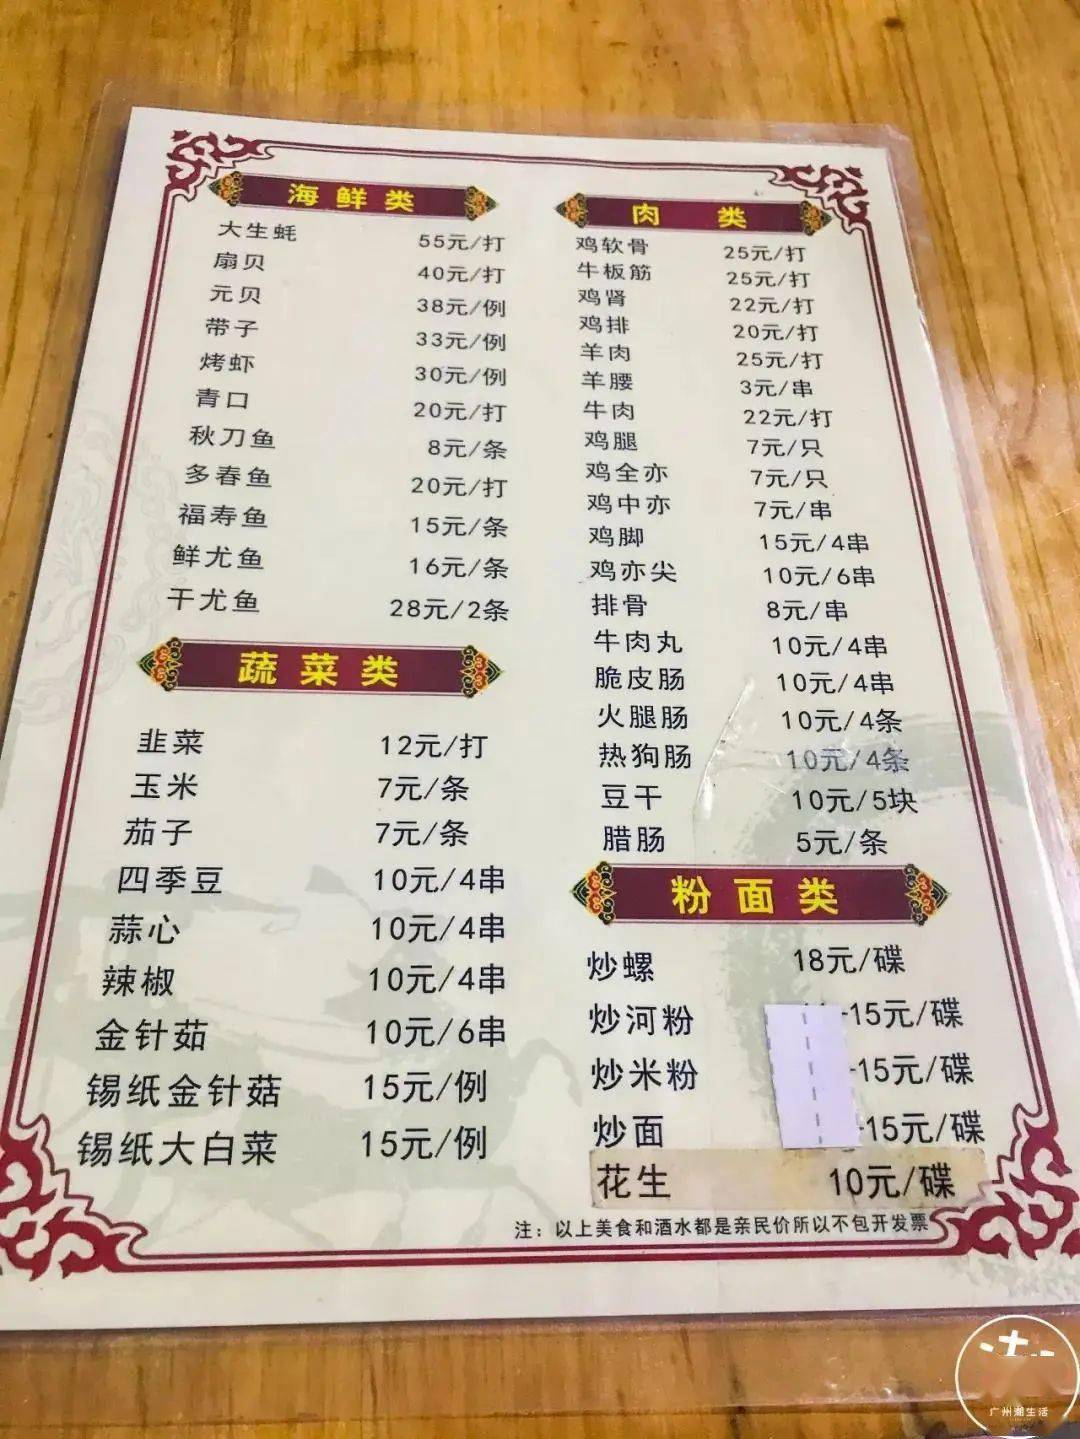 海鲜类
大生蚝 55元/打
扇贝 40元/打
元贝 38元/例
带子 33元/例
烤虾 30元/例
青口 20元/打
秋刀鱼 8元/条
多春鱼 20元/打
福寿鱼 15元/条
鲜尤鱼 16元/条
干尤鱼 28元/2条
蔬菜类
韭菜 12元/打
玉米 7元/条
茄子 7元/条
四季豆 10元/4串
蒜心 10元/4串
辣椒 10元/4串
金针茹 10元/6串
锡纸金针菇 15元/例
锡纸大白菜 15元/例
肉类
鸡软骨 25元/打
牛板筋 25元/打
鸡肾 22元/打
鸡排 20元/打
羊肉 25元/打
羊腰 3元/串
牛肉 22元/打
鸡腿 7元/只
鸡全亦 7元/只
鸡中亦 7元/串
鸡脚 15元/4串
鸡亦尖 10元/6串
排骨 8元/串
牛肉丸 10元/4串
脆皮肠 10元/4串
火腿肠 10元/4条
热狗肠 10元/4条
豆干 10元/5块
腊肠 5元/条
粉面类
炒螺 18元/碟
炒河粉 -15元/碟
炒米粉 -15元/碟
炒面 -15元/碟
花生 10元/碟
注：以上美食和酒水都是亲民价所以不包开发票
广州潮生活